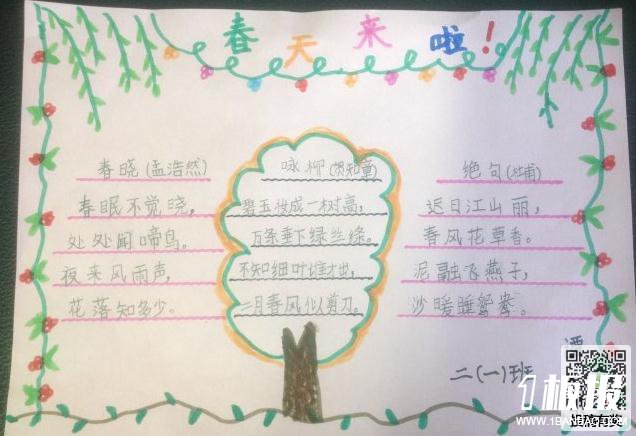 春天来啦！
春晓(孟浩然)
春眠不觉晓，
处处闻啼鸟。
夜来风雨声，
花落知多少。
咏柳(贺知章)
碧玉妆成一树高，
万条垂下绿丝绦。
不知细叶谁裁出，
二月春风似剪刀。
绝句(杜甫)
迟日江山丽，
春风花草香。
泥融飞燕子，
沙暖睡鸳鸯。
二(一)班
谭
1板报
WWW.1BANBAO.COM